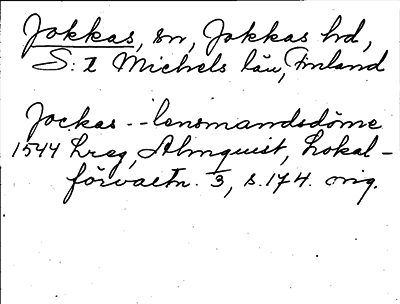 Jokkas, sn, Jokkas hd,
S:t Michels län, Finland
Jockas--lensmandsdöme
1544 Lreg, Almquist, Lokal-
förvaltn. 3, s. 174. orig.